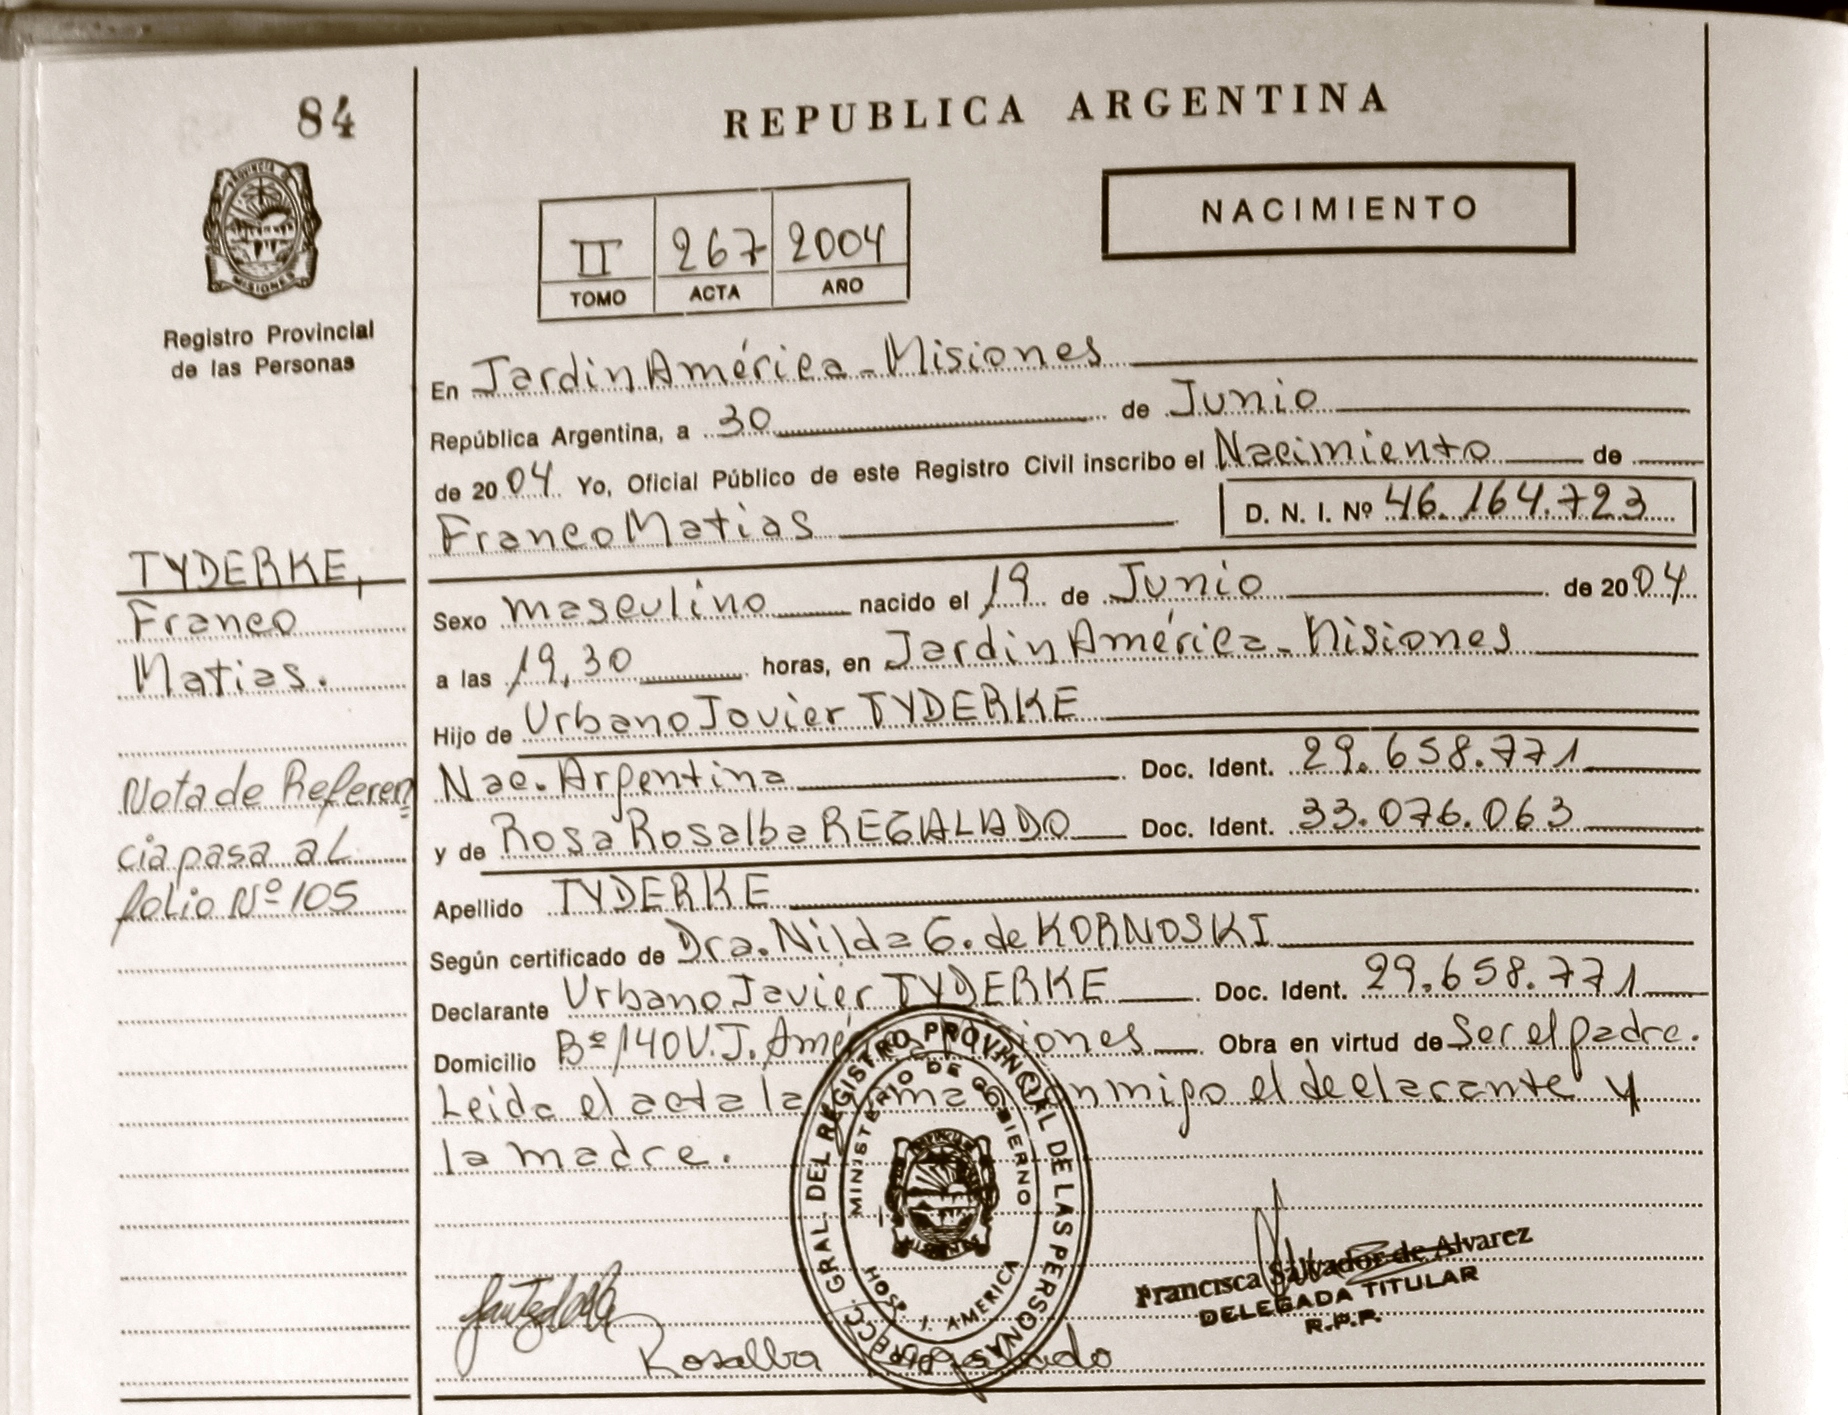 84
REPUBLICA ARGENTINA
PROVINCIA DE
MISIONES
Registro Provincial
de las Personas
NACIMIENTO
II 267 2004
TOMO ACTA AÑO
En Jardin América - Misiones
República Argentina, a 30 de Junio
de 2004 Yo, Oficial Público de este Registro Civil inscribo el Nacimiento de
Franco Matias D. N. I. Nº 46.164.723
TYDERKE,
Franco
Matias.
Sexo masculino nacido el 19 de Junio de 2004
a las 19,30 horas, en Jardin América - Misiones
Hijo de Urbano Javier TYDERKE
Nac. Argentina Doc. Ident. 29.658.771
y de Rosa Rosalba REGALADO Doc. Ident. 33.076.063
Nota de Referen
cia pasa al
folio Nº 105
Apellido TYDERKE
Según certificado de Dra. Nilda G. de KORNOSKI
Declarante Urbano Javier TYDERKE Doc. Ident. 29.658.771
Domicilio Bº 140 V. J. América Misiones Obra en virtud de Ser el padre.
Leida el acta la firma conmigo el declarante y
la madre.
DIRECC. GRAL. DEL REGISTRO PROVINCIAL DE LAS PERSONAS
MINISTERIO DE GOBIERNO
MISIONES
HOSP. J. AMERICA
Francisca Salvador de Alvarez
DELEGADA TITULAR
R.P.P.
Rosalba Regalado